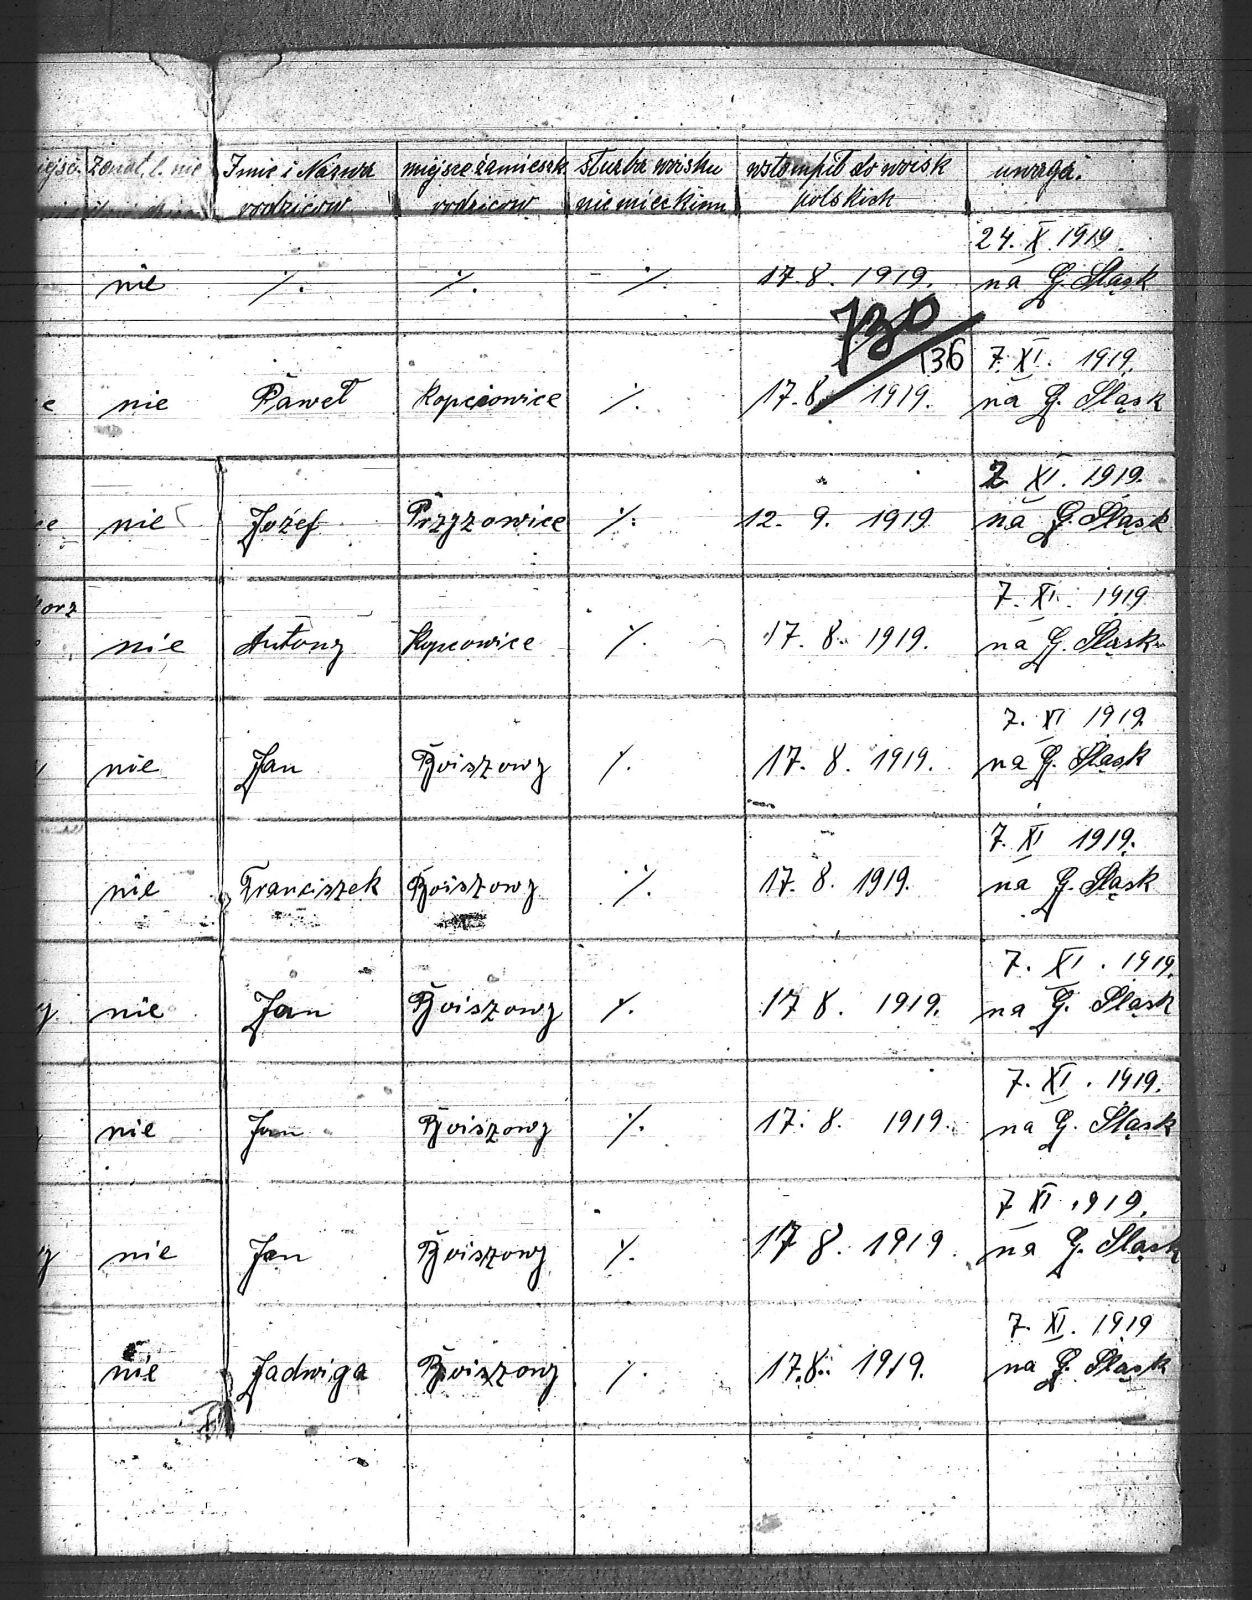 żonat, l. nie Imie i Nazwa miejsce zamieszk służba woisku wstompił do woisk uwaga.
rodziców rodziców niemieckimu polskich
24. X 1919.
nie ·/. ·/. - ·/. 17. 8. 1919. na G. Śląsk
730
136 7. XI. 1919.
e nie Paweł Kopciowice ·/. 17. 8. 1919. na G. Śląsk
7 XI. 1919.
ce nie Józef Przyzowice ·/. 12. 9. 1919 na G. Śląsk
korz 7. XI. 1919
nie Antony Kopcowice ·/. 17. 8. 1919. na G. Śląsk
7. XI 1919
nie Jan Boiszowy ·/. 17. 8. 1919. na G. Śląsk
7. XI 1919.
nie Franciszek Boiszowy ·/. 17. 8. 1919. na G. Śląsk
7. XI. 1919.
y nie Jan Boiszowy ·/. 17 8. 1919. na G. Śląsk
7. XI. 1919.
nie Jan Boiszowy ·/. 17. 8. 1919. na G. Śląsk
7 XI 1919.
y nie Jan Boiszowy ·/. 17 8. 1919. na G. Śląsk
7. XI. 1919
nie Jadwiga Boiszowy ·/. 17. 8. 1919. na G. Śląsk